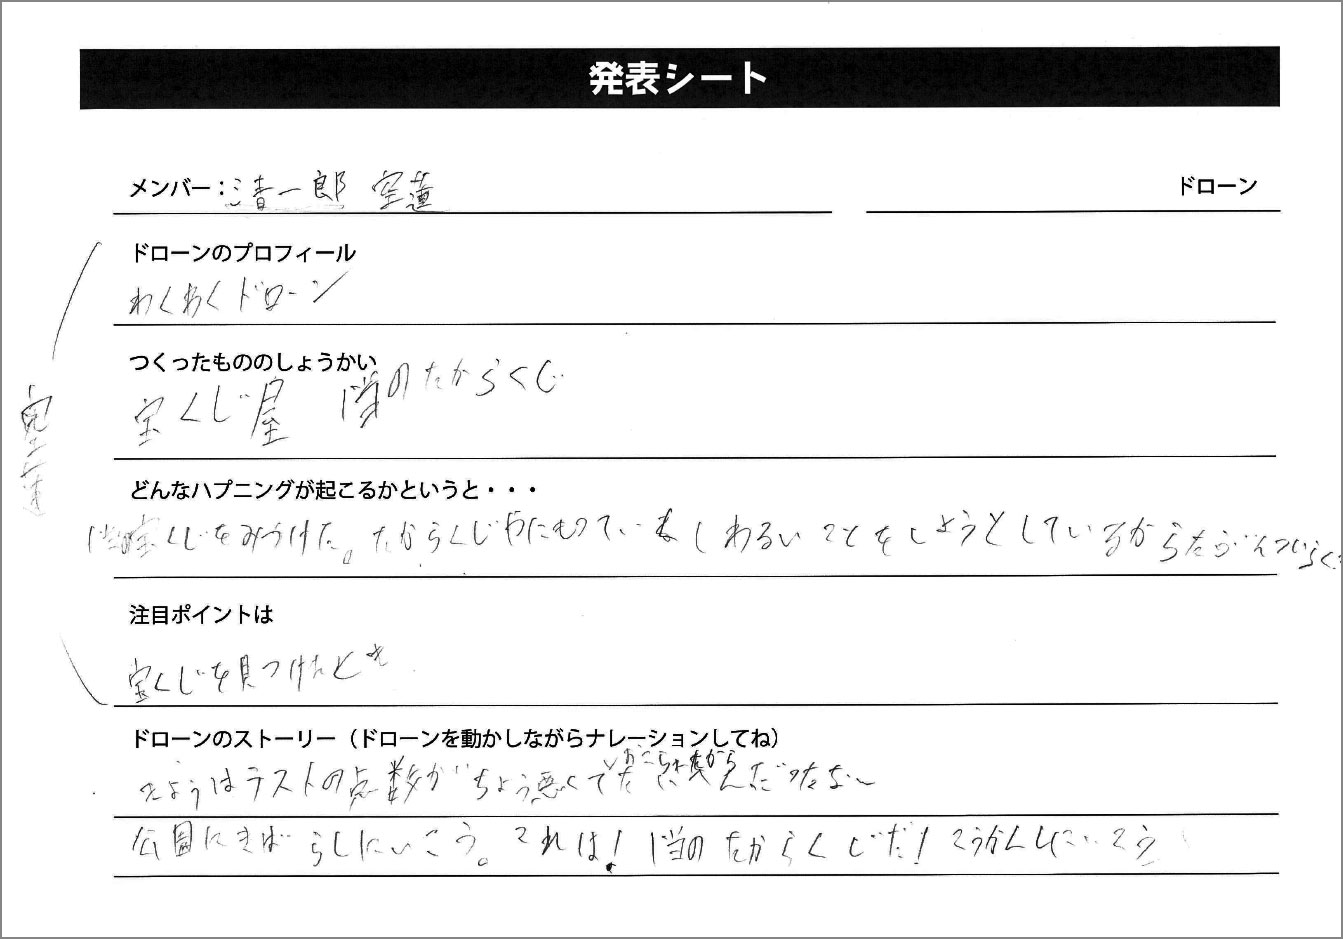 発表シート
メンバー：清一郎 空蓮
ドローン
ドローンのプロフィール
わくわくドローン
つくったもののしょうかい
宝くじ屋 1等のたからくじ
どんなハプニングが起こるかというと・・・
宝くじをみつけた。たからくじ わるいことをしようとしているから
注目ポイントは
宝くじを見つけたとき
ドローンのストーリー（ドローンを動かしながらナレーションしてね）
きょうはテストの点数がちょう悪くて
公園にきばらしにいこう。これは！1等のたからくじだ！こうかんしにいこう
空蓮